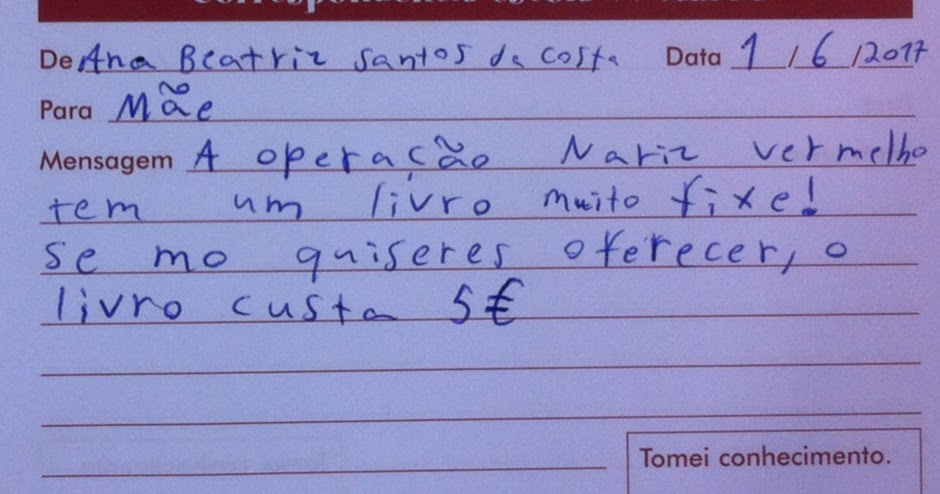 De Ana Beatriz Santos da Costa Data 1/6/2017
Para Mãe
Mensagem A operação Nariz vermelho
tem um livro muito fixe!
se mo quiseres oferecer, o
livro custa 5€
Tomei conhecimento.